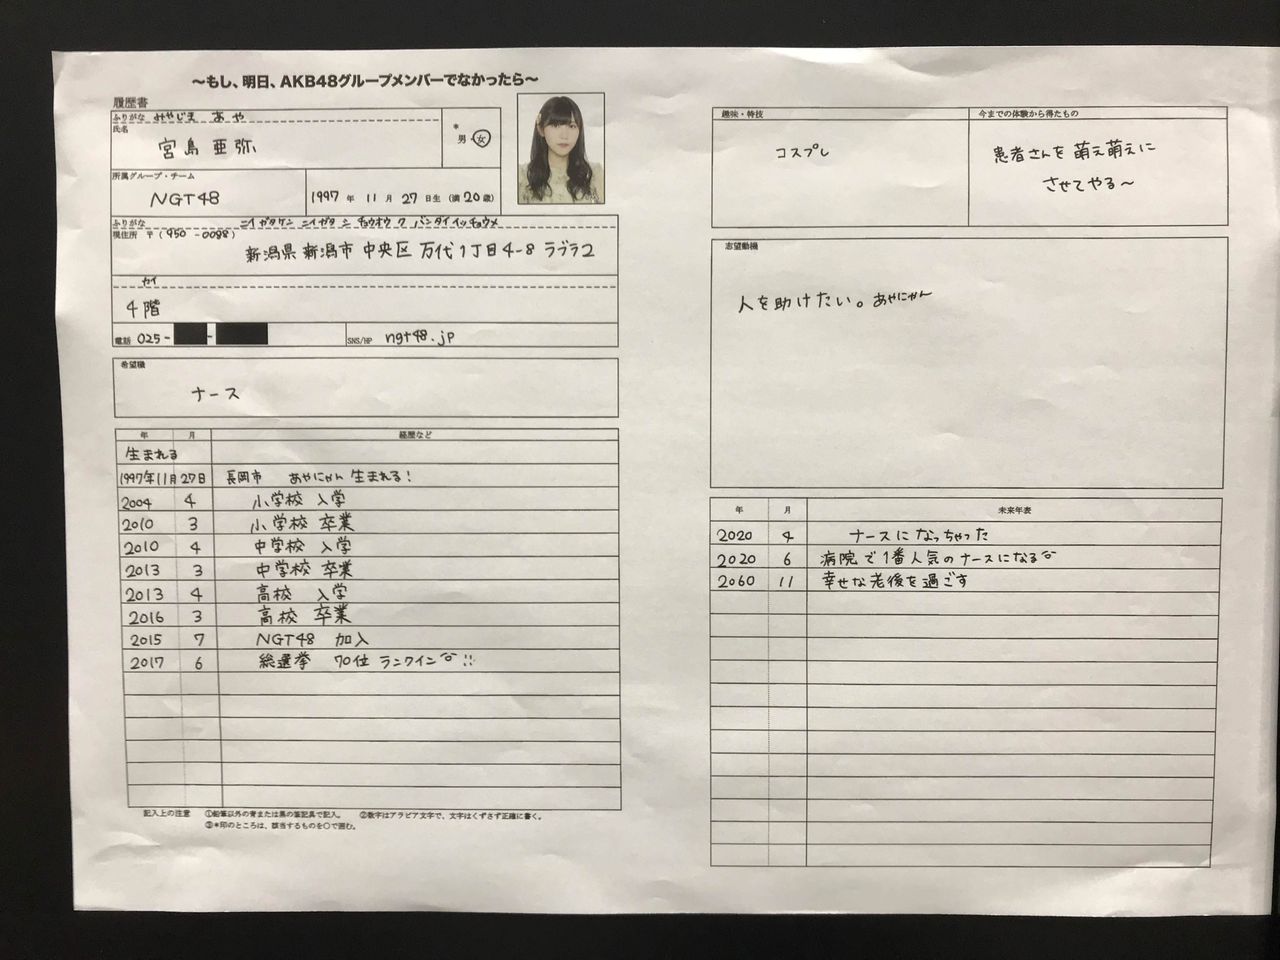 ～もし、明日、AKB48グループメンバーでなかったら～
履歴書
ふりがな みやじま あや
氏名
宮島 亜弥
* 男・女
所属グループ・チーム
NGT48
1997 年 11 月 27 日生 (満 20 歳)
ふりがな ニイガタケン ニイガタシ チュウオウク バンダイイッチョウメ
現住所 〒(950-0088)
新潟県新潟市中央区万代1丁目4-8 ラブラ2
カイ
4階
電話 025-
SNS/HP ngt48.jp
希望職
ナース
年 月 経歴など
生まれる
1997年11月27日 長岡市 あやにゃん 生まれる!
2004 4 小学校 入学
2010 3 小学校 卒業
2010 4 中学校 入学
2013 3 中学校 卒業
2013 4 高校 入学
2016 3 高校 卒業
2015 7 NGT48 加入
2017 6 総選挙 70位 ランクイン!!
記入上の注意 ①鉛筆以外の青または黒の筆記具で記入。 ②数字はアラビア文字で、文字はくずさず正確に書く。
③*印のところは、該当するものを○で囲む。
趣味・特技
コスプレ
今までの体験から得たもの
患者さんを萌え萌えに
させてやる～
志望動機
人を助けたい。あやにゃん
年 月 未来年表
2020 4 ナースになっちゃった
2020 6 病院で1番人気のナースになる
2060 11 幸せな老後を過ごす